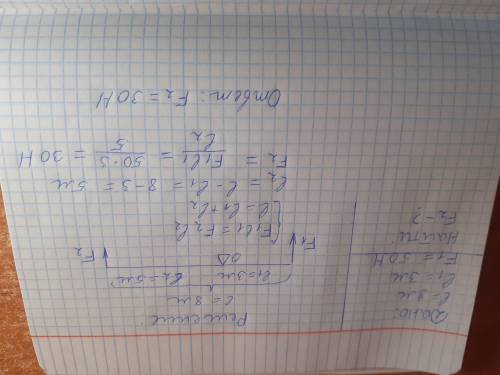 Дано:
l = 8м
l₁ = 3м
F₁ = 50Н
Найти:
F₂ - ?
Решение
l = 8м
l₁=3м l₂=5м
O
F₁ F₂
F₁l₁ = F₂l₂
l = l₁ + l₂
l₂ = l - l₁ = 8 - 3 = 5м
F₂ = F₁l₁/l₂ = 50·3/5 = 30Н
Ответ: F₂ = 30Н